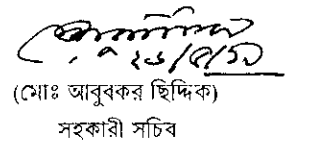 (মোঃ আবুবকর ছিদ্দিক)
সহকারী সচিব